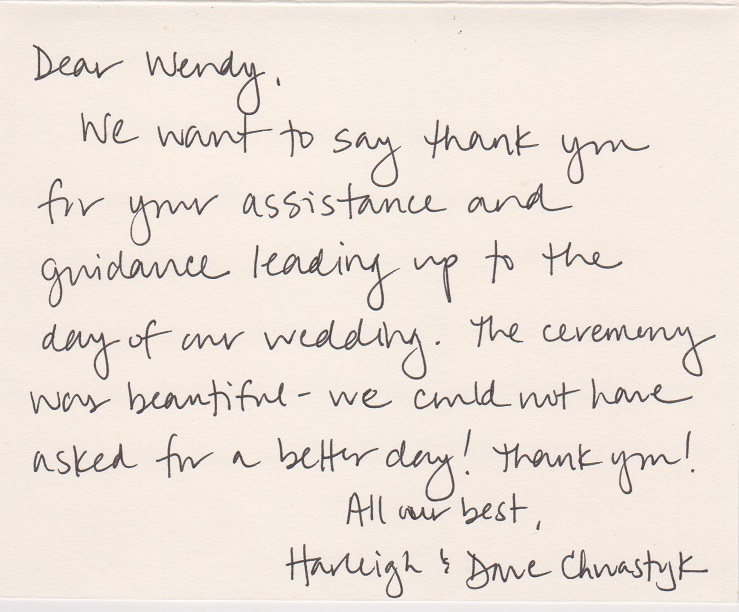 Dear Wendy,
We want to say thank you
for your assistance and
guidance leading up to the
day of our wedding. The ceremony
was beautiful - we could not have
asked for a better day! Thank you!
All our best,
Harleigh & Dave Chwastyk